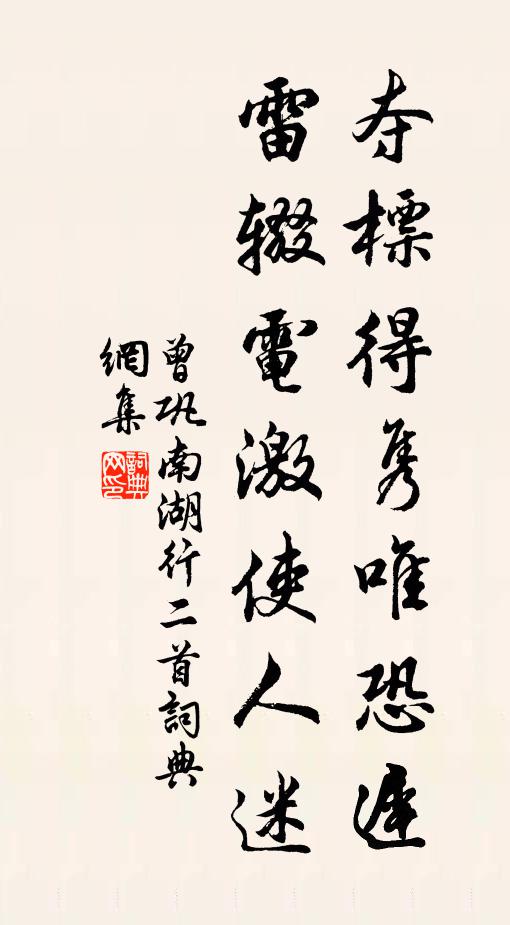 夺標得隽唯恐遲
雷辍電激使人迷
曾巩南湖行二首詞典
網集
詞典
网印